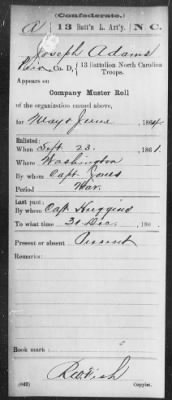 (Confederate.)
A 13 Batt'n L. Art'y. N C.
Joseph Adams
Co. D, 13 Battalion North Carolina Troops.
Appears on
Company Muster Roll
of the organization named above,
for May & June 1864.
Enlisted:
When Sept 23, 1861.
Where Washington
By whom Capt. Jones
Period War.
Last paid:
By whom Capt Huggins
To what time 31 Dec, 186
Present or absent Present
Remarks:
Book mark:
R W Fish
(642) Copyist.